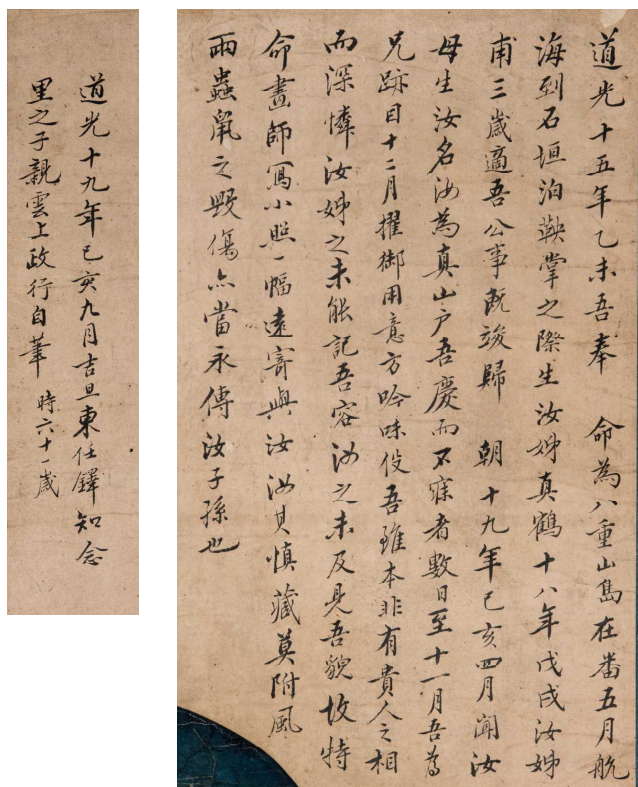 道光十五年乙未吾奉　命為八重山島在番五月航
海到石垣泊鞅掌之際生汝姊真鶴十八年戊戌汝姊
甫三歲適吾公事既竣歸　朝十九年己亥四月聞汝
母生汝名汝為真山戶吾慶而不寐者數日至十一月吾為
兄跡目十二月擢御用意方吟味役吾雖本非有貴人之相
而深憐汝姊之未能記吾容汝之未及見吾貌故特
命畫師寫小照一幅遠寄與汝汝其慎藏莫附風
雨蟲鼠之毀傷亦當永傳汝子孫也
道光十九年己亥九月吉旦東任鐸知念
里之子親雲上政行自筆　時六十一歲